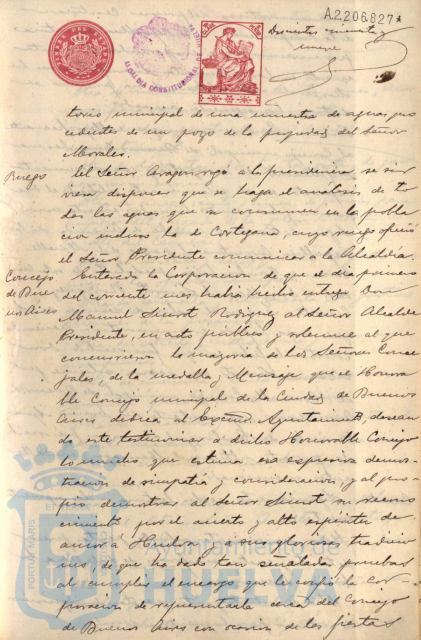 A2206827*
Doscientos noventa y
nueve
ALCALDIA CONSTITUCIONAL
torio municipal de una muestra de aguas pro
cedentes de un pozo de la propiedad del Señor
Morales.
Ruego
El Señor Aragon rogó á la presidencia se sir
viera disponer que se haga el analisis de to
das las aguas que se consumen en la pobla
cion incluso la de Cortegana, cuyo ruego ofreció
el Señor Presidente comunicar a la Alcaldía.
Concejo
de Bue
nos Aires
Enterada la Corporacion de que el dia primero
del corriente mes habia hecho entrega Don
Manuel Siurot Rodriguez al Señor Alcalde
Presidente, en acto publico y solemne al que
concurrieron la mayoria de los Señores Conce
jales, de la medalla y Mensaje que el Honora
ble Concejo municipal de la Ciudad de Buenos
Aires dedica al Excmo. Ayuntamiento, desean
do este testimoniar a dicho Honorable Concejo
lo mucho que estima esa expresiva demos
tracion de simpatia y consideracion, y al pro
pio demostrar al Señor Siurot su recono
cimiento por el acierto y alto espiritu de
amor a Huelva y a sus gloriosas tradicio
nes, de que ha dado tan señaladas pruebas
al cumplir el encargo que le confió la Cor
poracion de representarla cerca del Concejo
de Buenos Aires con ocasion de las fiestas
PORTUS MARIS
Ayuntamiento de
HUELVA